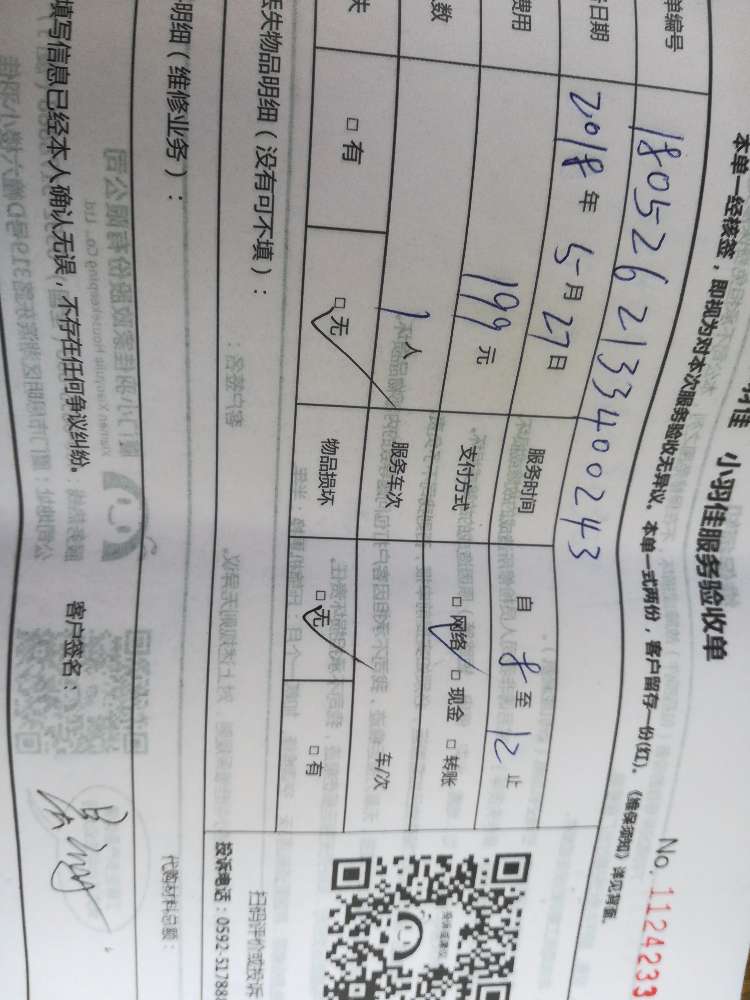 羽佳 小羽佳服务验收单
No. 1124233
本单一经核签，即视为对本次服务验收无异议。本单一式两份，客户留存一份(红)。《维保须知》详见背面。
单编号 180526213340 0243
日期 2018年5月27日 服务时间 自 8 至 12 止
费用 199 元 支付方式 □网络 □现金 □转账
数 1 人 服务车次 车/次
失 □有 □无 物品损坏 □无 □有
丢失物品明细（没有可不填）：
扫码评价或投诉
投诉电话：0592-51788
明细（维修业务）：
代购材料总额：
填写信息已经本人确认无误，不存在任何争议纠纷。 客户签名：